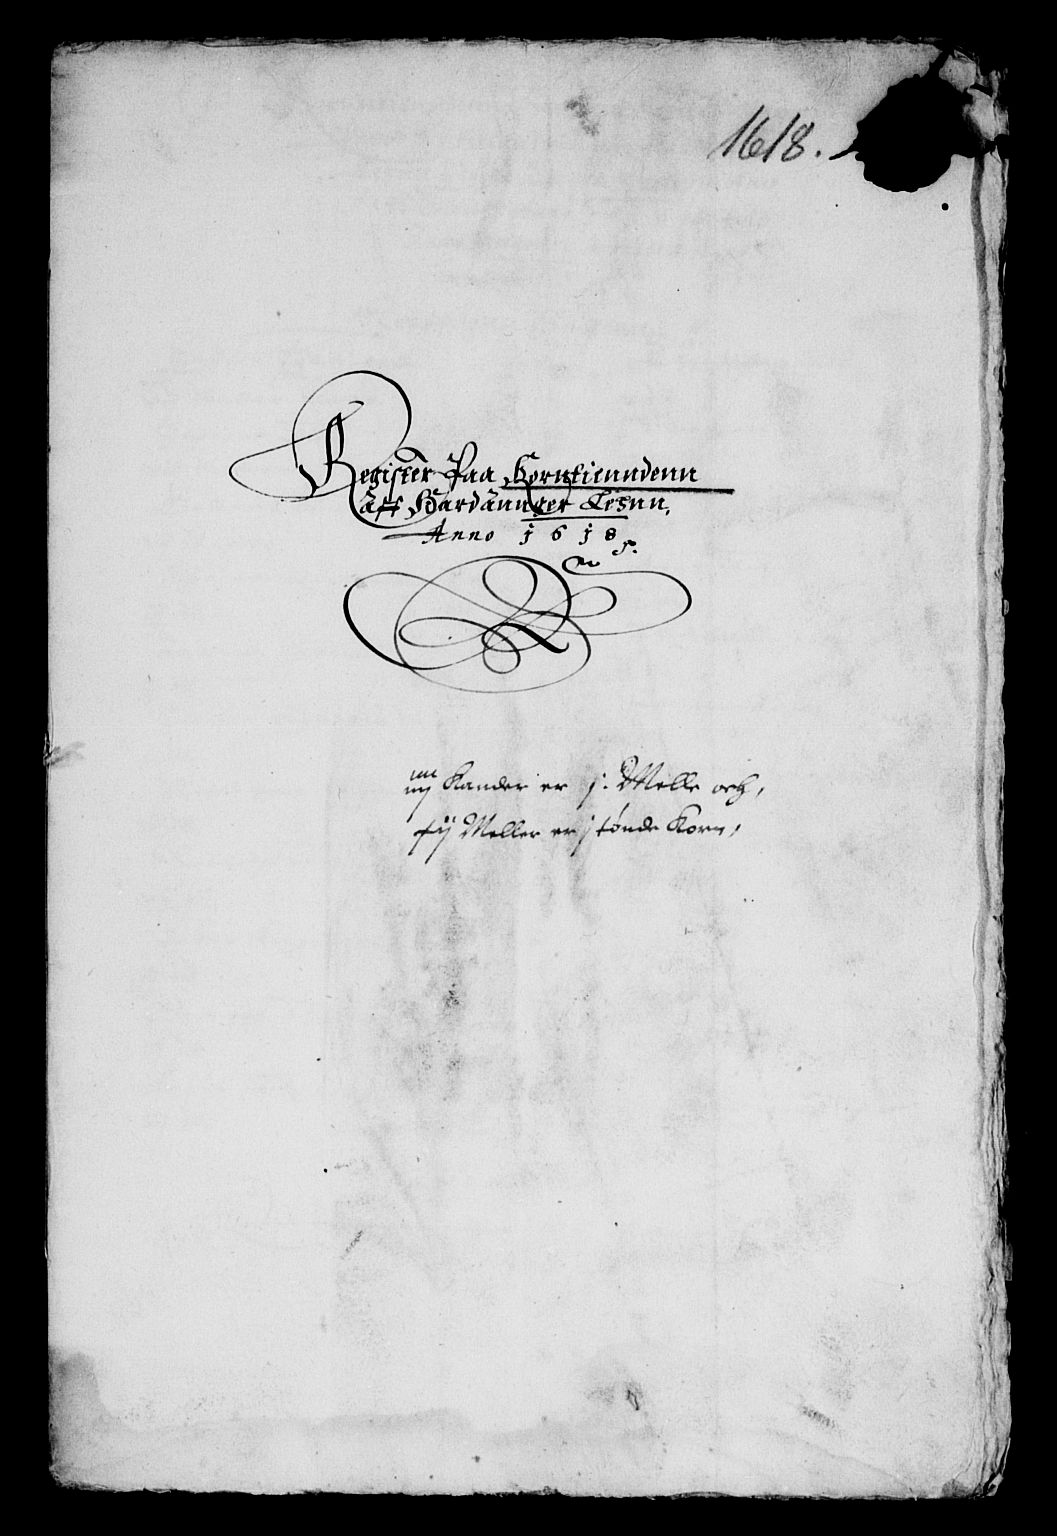 1618.
Register Paa Korntienndenn
aff Hardannger Lehnn,
Anno 1618
Kander er j: Melle och,
Meller er j tønde Korn,